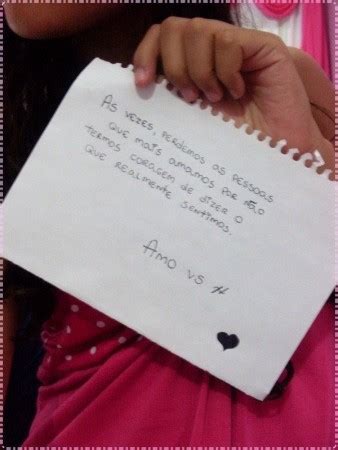 As vezes, perdemos as pessoas
que mais amamos por não
termos coragem de dizer o
que realmente sentimos.
Amo vs #